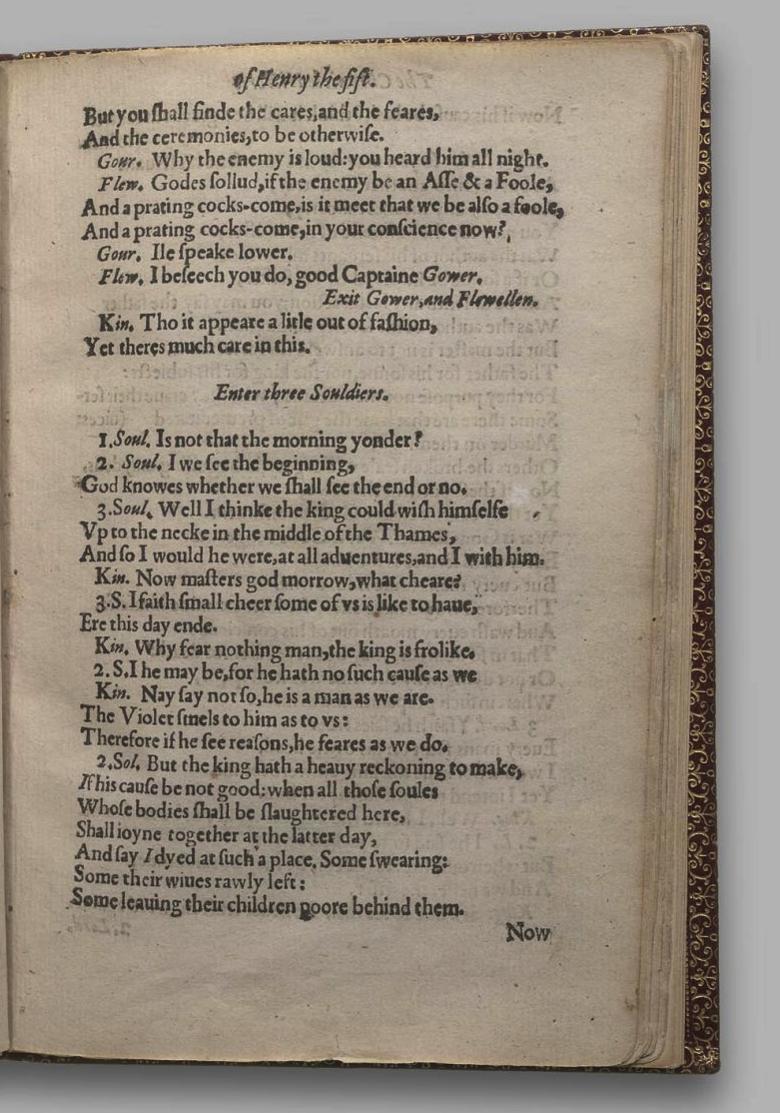 of Henry the fift.
But you ſhall finde the cares, and the feares,
And the ceremonies, to be otherwiſe.
Gour. Why the enemy is loud: you heard him all night.
Flew. Godes ſollud, if the enemy be an Aſſe & a Foole,
And a prating cocks-come, is it meet that we be alſo a foole,
And a prating cocks-come, in your conſcience now?
Gour. Ile ſpeake lower.
Flew. I beſeech you do, good Captaine Gower.
Exit Gower, and Flewellen.
Kin. Tho it appeare a litle out of faſhion,
Yet theres much care in this.
Enter three Souldiers.
1. Soul. Is not that the morning yonder?
2. Soul. I we ſee the beginning,
God knowes whether we ſhall ſee the end or no.
3. Soul. Well I thinke the king could wiſh himſelfe
Vp to the necke in the middle of the Thames,
And ſo I would he were, at all aduentures, and I with him.
Kin. Now maſters god morrow, what cheare?
3. S. I faith ſmall cheer ſome of vs is like to haue,
Ere this day ende.
Kin. Why fear nothing man, the king is frolike.
2. S. I he may be, for he hath no ſuch cauſe as we
Kin. Nay ſay not ſo, he is a man as we are.
The Violet ſmels to him as to vs:
Therefore if he ſee reaſons, he feares as we do.
2. Sol. But the king hath a heauy reckoning to make,
If his cauſe be not good: when all thoſe ſoules
Whoſe bodies ſhall be ſlaughtered here,
Shall ioyne together at the latter day,
And ſay I dyed at ſuch a place. Some ſwearing:
Some their wiues rawly left:
Some leauing their children poore behind them.
Now